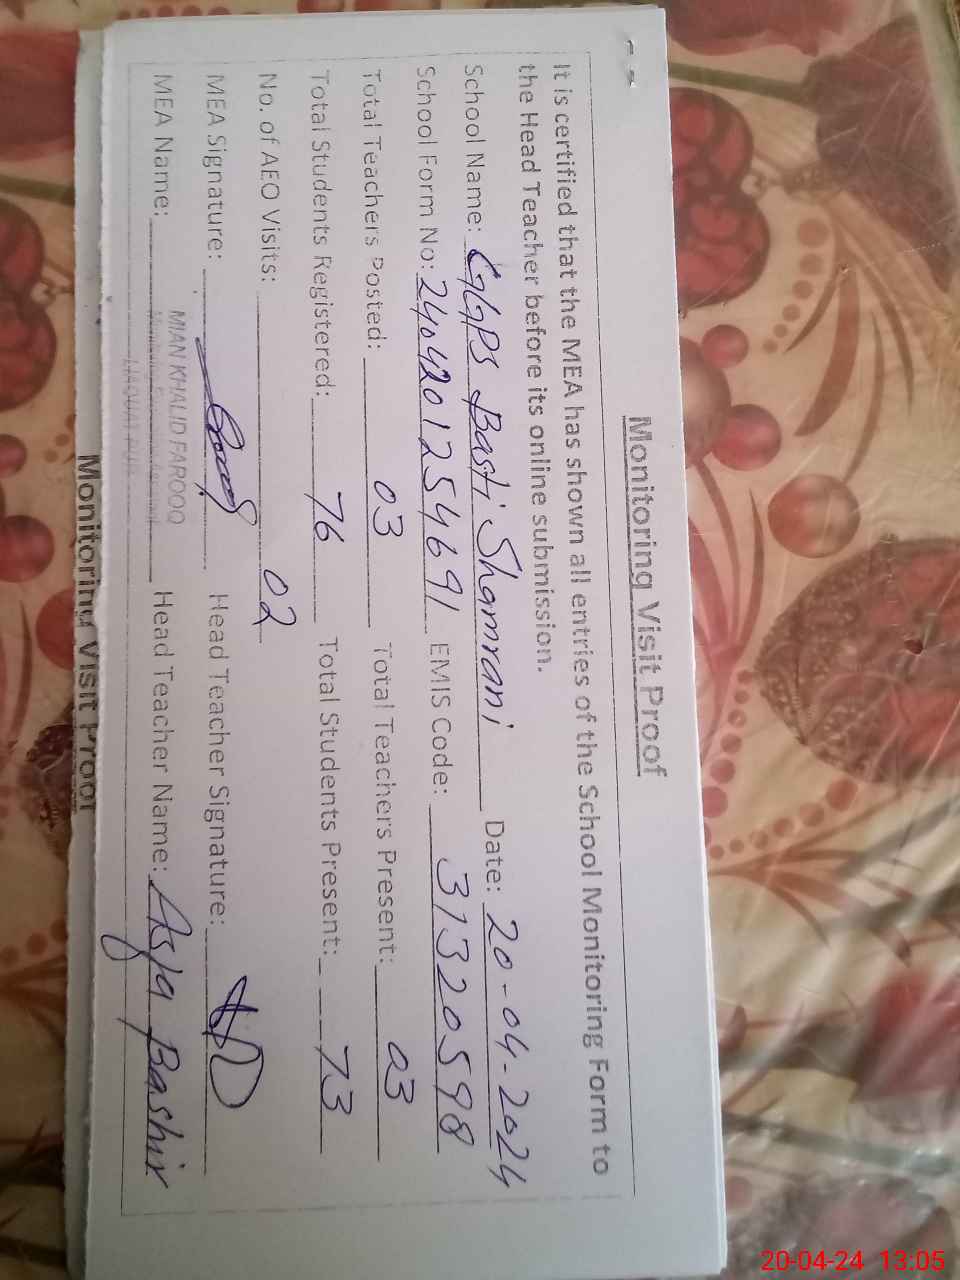 Monitoring Visit Proof
It is certified that the MEA has shown all entries of the School Monitoring Form to
the Head Teacher before its online submission.
School Name: GGPS Basti Shamrani Date: 20-04-2024
School Form No: 24042012 54691 EMIS Code: 31320598
Total Teachers Posted: 03 Total Teachers Present: 03
Total Students Registered: 76 Total Students Present: 73
No. of AEO Visits: 02
MEA Signature: Head Teacher Signature:
MIAN KHALID FAROOQ
MEA Name: Head Teacher Name: Asja Bashir
LIAQUAT PUR
Monitoring Visit Proof
20-04-24 13:05